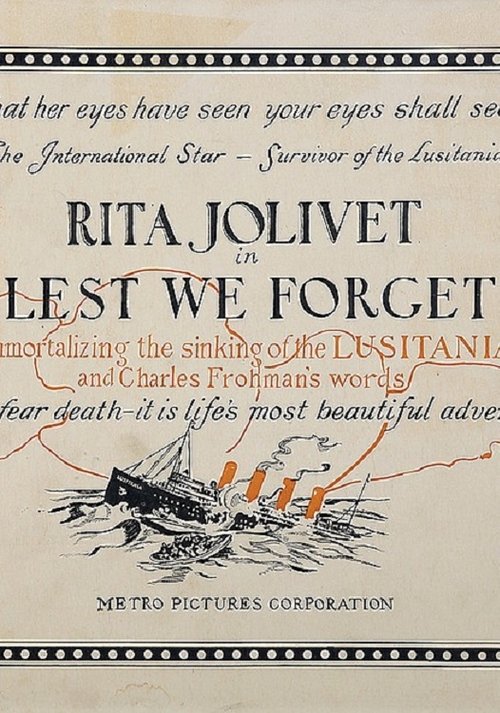 at her eyes have seen your eyes shall see
he International Star – Survivor of the Lusitania
RITA JOLIVET
in
LEST WE FORGET
mmortalizing the sinking of the LUSITANIA
and Charles Frohman's words
fear death–it is life's most beautiful adve
METRO PICTURES CORPORATION